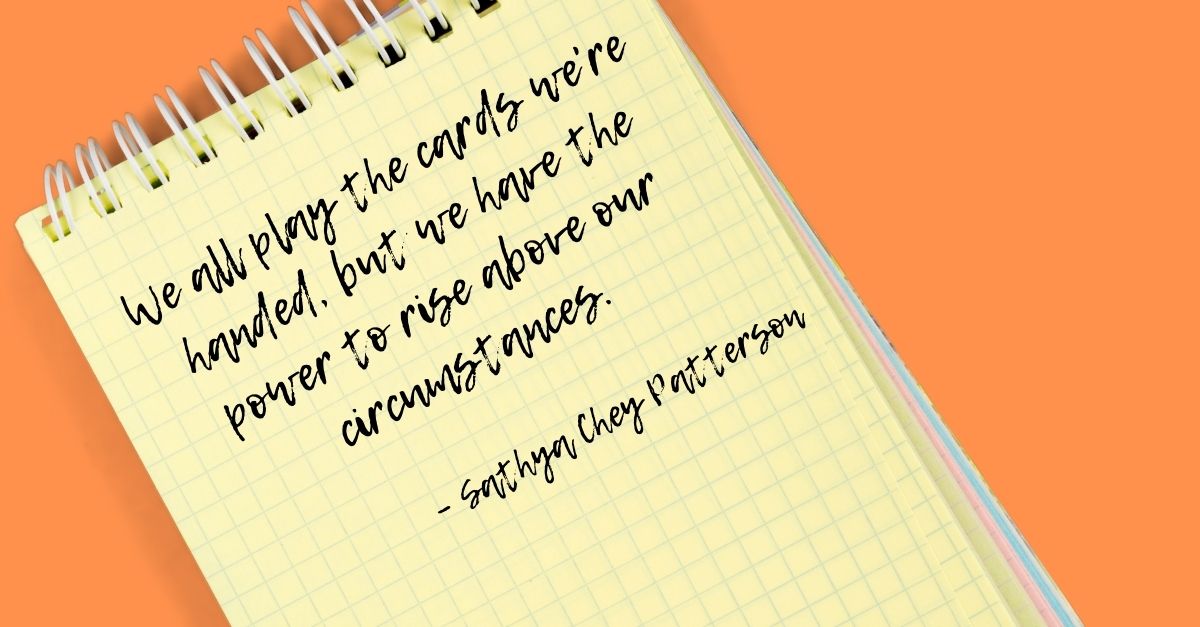 We all play the cards we're
handed, but we have the
power to rise above our
circumstances.
- Sathya Chey Patterson